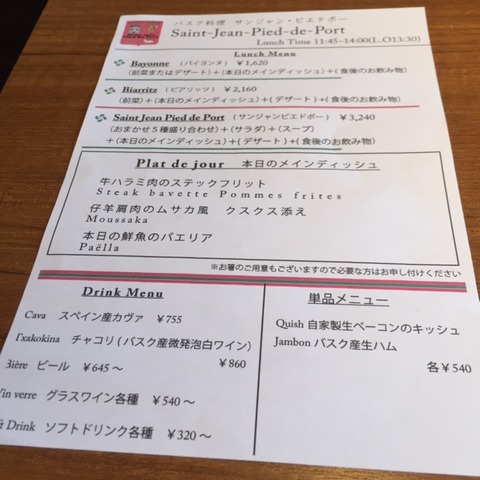 バスク料理 サンジャン・ピエドポー
Saint-Jean-Pied-de-Port
Lunch Time 11:45~14:00(L.O13:30)
Lunch Menu
Bayonne (バイヨンヌ) ¥1,620
(前菜またはデザート)+(本日のメインディッシュ)+(食後のお飲み物)
Biarritz (ビアリッツ) ¥2,160
(前菜)+(本日のメインディッシュ)+(デザート)+(食後のお飲み物)
Saint Jean Pied de Port (サンジャンピエドポー) ¥3,240
(おまかせ5種盛り合わせ)+(サラダ)+(スープ)
+(本日のメインディッシュ)+(デザート)+(食後のお飲み物)
Plat de jour 本日のメインディッシュ
牛ハラミ肉のステックフリット
Steak bavette Pommes frites
仔羊肩肉のムサカ風 クスクス添え
Moussaka
本日の鮮魚のパエリア
Paëlla
※お箸のご用意もございますので必要な方はお申し付けください
Drink Menu
Cava スペイン産カヴァ ¥755
Txakokina チャコリ(バスク産微発泡白ワイン)
¥860
3ière ビール ¥645~
in verre グラスワイン各種 ¥540~
t Drink ソフトドリンク各種 ¥320~
単品メニュー
Quish 自家製生ベーコンのキッシュ
Jambon バスク産生ハム
各¥540